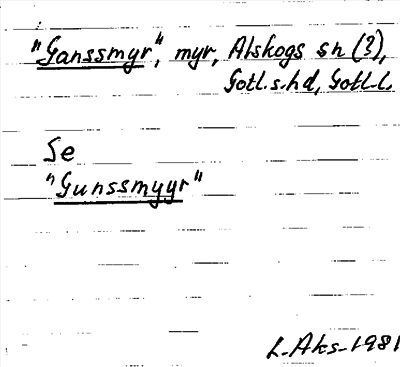 "Ganssmyr", myr, Alskogs sn (?),
Gotl.s.hd, Gotl.l.
Se
"Gunssmyyr"
L. Aks-1981